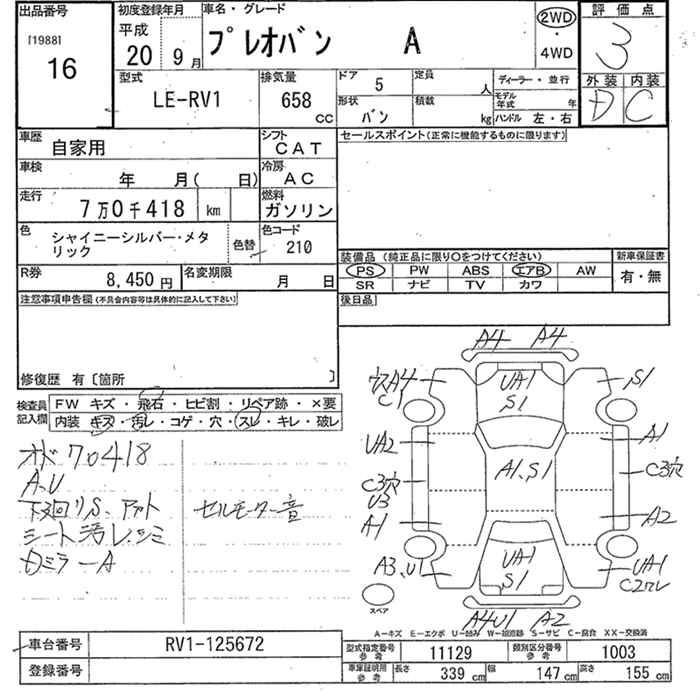 出品番号
[1988]
16
初度登録年月
平成
20年9月
車名・グレード
プレオバン A
2WD
・
4WD
評価点
3
外装 内装
D C
型式
LE-RV1
排気量
658 CC
ドア 5
定員 人
形状 バン
積載 kg
ディーラー・並行
モデル年式 年
ハンドル 左・右
車歴 自家用
シフト CAT
車検 年 月( 日)
冷房 AC
走行 7万0千418 km
燃料 ガソリン
色 シャイニーシルバー・メタリック
色替
色コード 210
R券 8,450円
名変期限 月 日
セールスポイント(正常に機能するものに限ります)
装備品 (純正品に限り○をつけてください)
新車保証書
PS PW ABS エアB AW
SR ナビ TV カワ
有・無
後日品
注意事項申告欄(不具合内容等は具体的に記入して下さい)
修復歴 有〔箇所 〕
検査員記入欄
FW キズ・飛石・ヒビ割・リペア跡・×要
内装 キズ・汚レ・コゲ・穴・スレ・キレ・破レ
オド70418
A、U
下廻リS、アット
シート汚レ、シミ
Dミラ-A
セルモーター音
A4 A4
ウスA4
C1
UA1
S1
S1
UA2
A1
A1、S1
C3穴
U3
C3穴
A1
A2
A3、U1
UA1
S1
UA1
C2ワレ
スペア
A4U1 A2
A-キズ E-エクボ U-凹み W-補修跡 S-サビ C-腐食 XX-交換済
車台番号 RV1-125672
登録番号
型式指定番号 参考 11129
類別区分番号 参考 1003
車庫証明用 参考 長さ 339 cm 幅 147 cm 高さ 155 cm